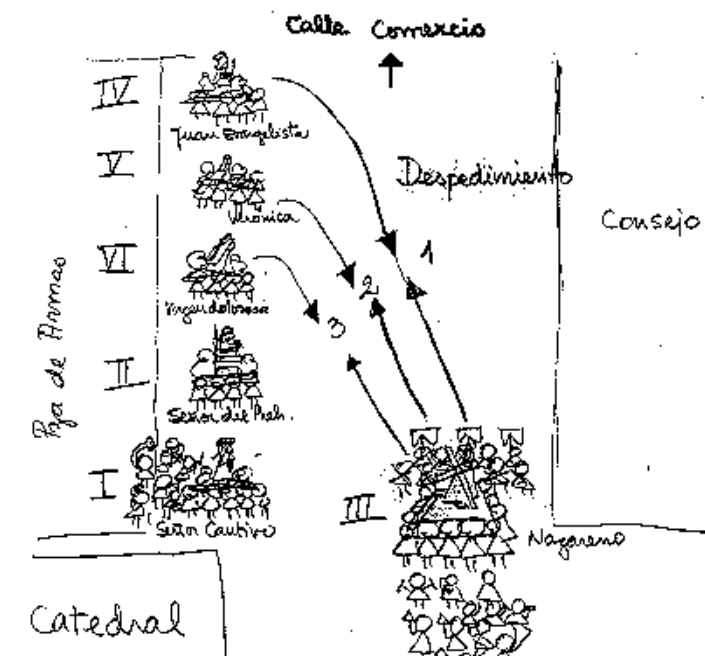 Calle Comercio
IV
Juan Evangelista
V
Verónica
Despedimiento
1
Consejo
VI
Virgen dolorosa
2
3
Plza de Armas
II
Señor del Preh.
I
Señor Cautivo
III
Nazareno
Catedral